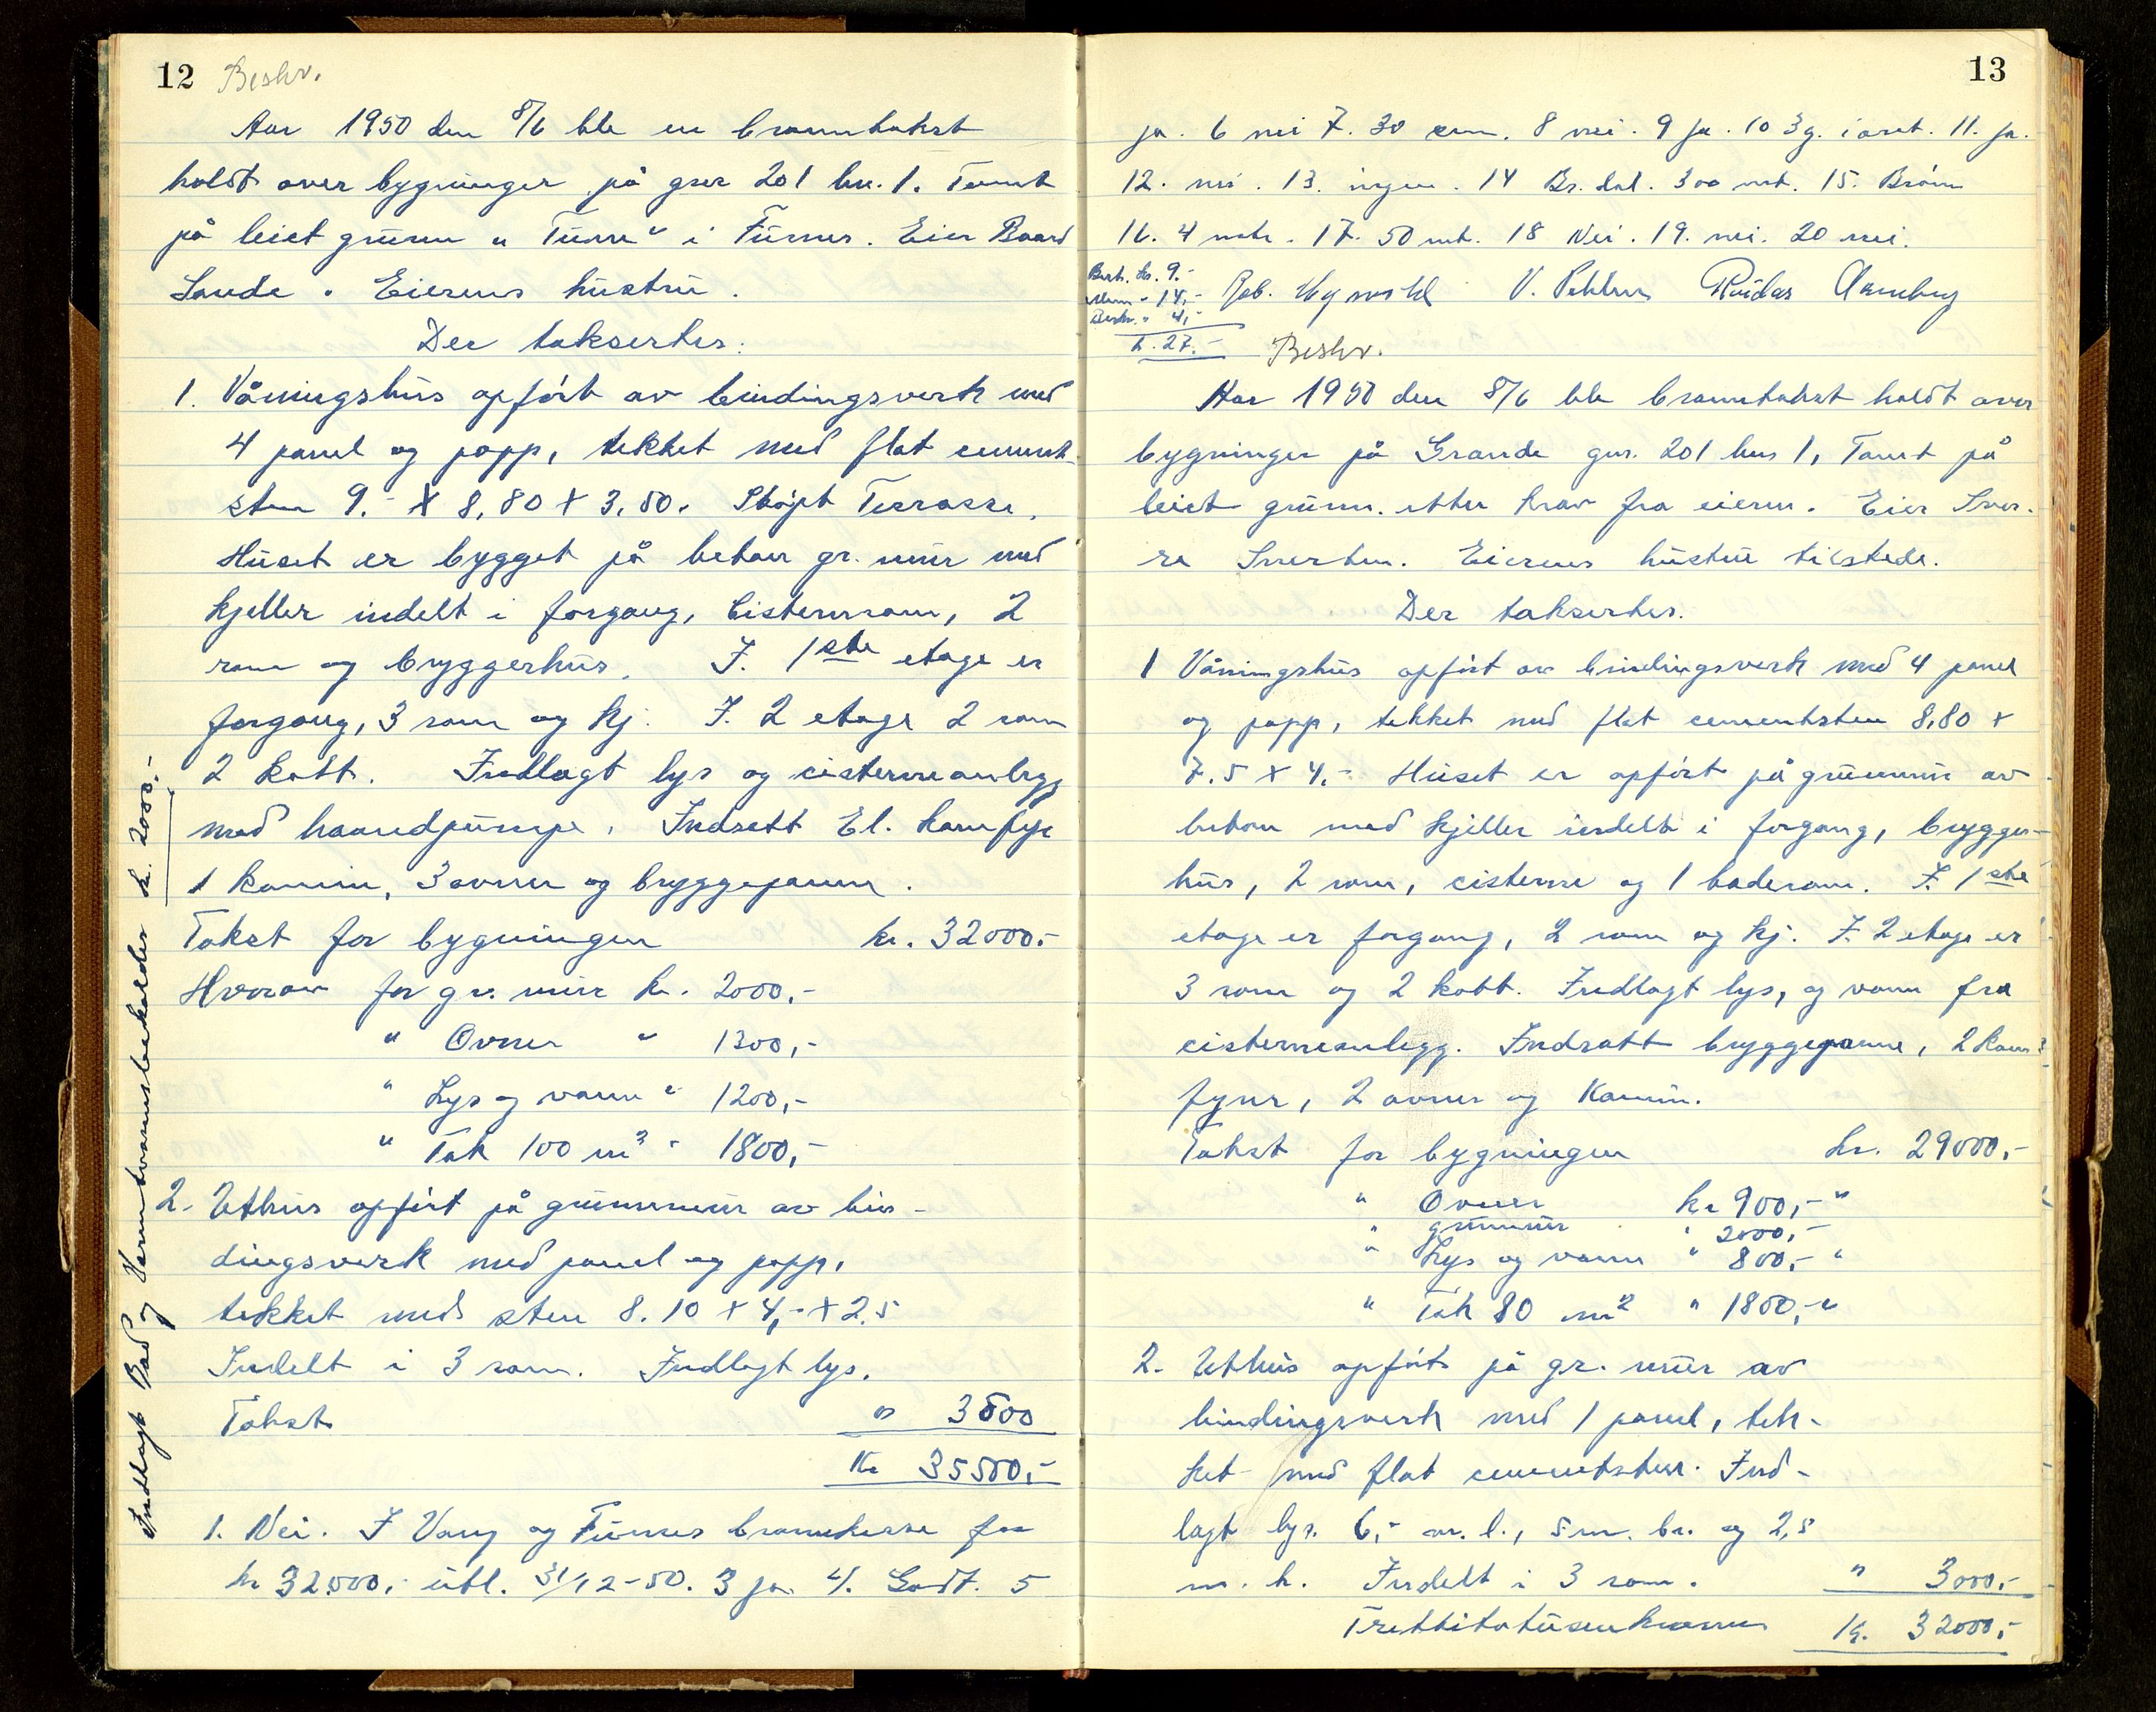 12 Beskr.
Aar 1950 den 8/6 ble en branntakst
holdt over bygninger på gnr 201 bn. 1. Tomt
på leiet grunn " Tunre" i Furnes. Eier Baard
Lande. Eierens hustru.
Der taksertes:
1. Våningshus opført av bindingsverk med
4 panel og papp, tekket med flat cement-
sten 9.- X 8,80 X 3,50. Støpt Terrasse.
Huset er bygget på beton gr. mur med
kjeller indelt i forgang, Cisternrom, 2
rom og bryggerhus. I. 1ste etage er
forgang, 3 rom og kj. I. 2 etage 2 rom
2 kott. Indlagt lys og cisterneanlegg
med haandpumpe. Indsatt El. komfyr
1 kamin, 3 ovner og bryggepanne.
Takst for bygningen kr. 32000.-
Hvorav for gr. mur kr. 2000,-
" Ovner " 1300,-
" Lys og vann " 1200,-
" Tak 100 m2 " 1800,-
2. Uthus opført på grunnmur av bin-
dingsverk med panel og papp,
tekket med sten 8.10 X 4,- X 2.5
Indelt i 3 rom. Indlagt lys.
Takst " 3500
Kr 35500,-
1. Nei. I Vang og Furnes brannkasse for
kr 32.000,- utl. 31/12-50. 3 ja 4. Godt. 5
Indlagt Bad og Varmtvannsbeholder kr. 2000.-
13
ja. 6 nei 7. 30 cm. 8 nei. 9 ja. 10 3 g. i aret. 11. ja.
12. nei. 13. ingen. 14 Br. dal. 300 mt. 15. Brønn
16. 4 mtr. 17. 50 mt. 18 Nei. 19. nei. 20 nei.
kr. 9.-
" 14,-
Beskr. " 4,-
k. 27.-
Beskr.
Aar 1950 den 8/6 ble branntakst holdt over
bygninger på Grande gnr. 201 bnr 1, Tomt på
leiet grunn. etter krav fra eieren. Eier Sver-
re Sverten. Eierens hustru tilstede.
Der takserter.
1 Våningshus opført av bindingsverk med 4 panel
og papp, tekket med flat cementsten 8,80 x
7.5 X 4.- Huset er opført på grunnmur av
beton med kjeller indelt i forgang, brygger-
hus, 2 rom, cisterne og 1 baderom. I. 1ste
etage er forgang, 2 rom og kj. I. 2 etage er
3 rom og 2 kott. Indlagt lys, og vann fra
cisterneanlegg. Indsatt bryggepanne, 2 kom-
fyrer, 2 ovner og Kamin.
Takst for bygningen kr. 29000,-
" Ovner kr 900,- "
" grunnmur " 2000,-
" Lys og vann " 800,- "
" Tak 80 m2 " 1800,- "
2. Uthus opført på gr. mur av
bindingsverk med 1 panel, tek-
ket med flat cementsten. Ind-
lagt lys. 6,- m. l., 5 m. br. og 2,5
m. h. Indelt i 3 rom. " 3000,-
Trettitotusenkroner Kr. 32000,-